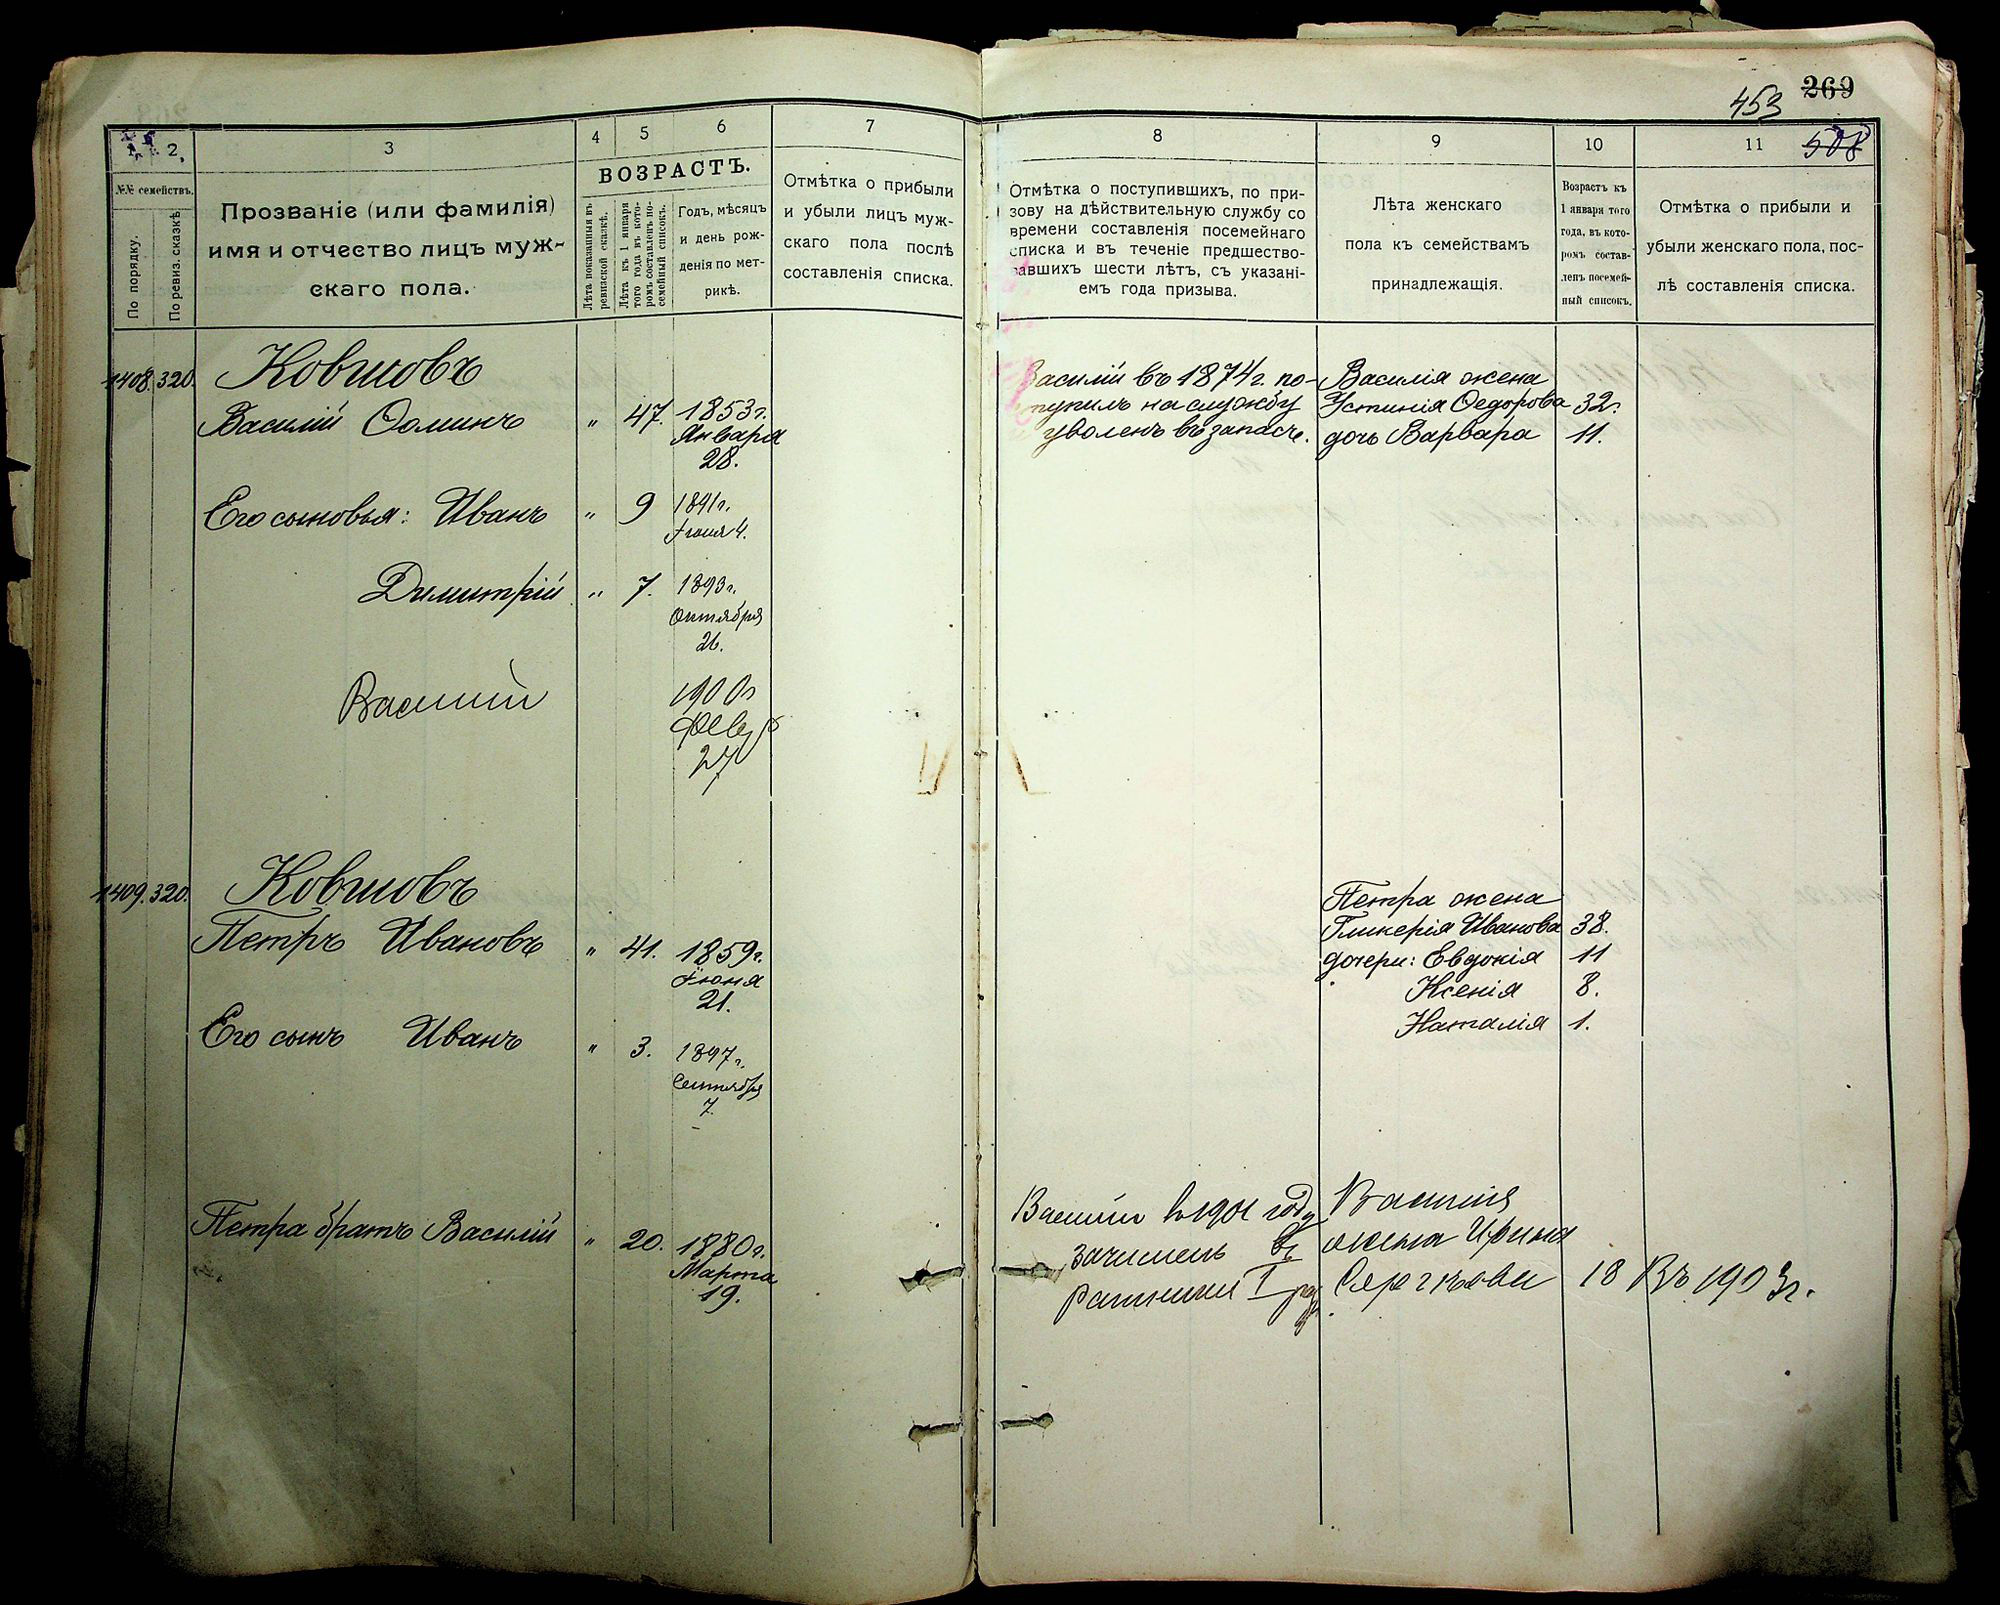 269
453
508
1 2 3 4 5 6 7
№№ семействъ.
По порядку.
По ревиз. сказкѣ.
Прозваніе (или фамилія)
имя и отчество лицъ муж-
скаго пола.
ВОЗРАСТЪ.
Лѣта показанныя въ
ревизской сказкѣ.
Лѣта къ 1 января
того года въ кото-
ромъ составленъ по-
семейный списокъ.
Годъ, мѣсяцъ
и день рож-
денія по мет-
рикѣ.
Отмѣтка о прибыли
и убыли лицъ муж-
скаго пола послѣ
составленія списка.
1408. 320. Ковшовъ
Василій Ѳоминъ " 47. 1853г.
Января
28.
Его сыновья: Иванъ " 9 1841г.
Іюля 4.
Димитрій " 7. 1893г.
Октября
26.
Василій 1900г
Февр
27
1409. 320. Ковшовъ
Петръ Ивановъ " 41. 1859г.
Іюня
21.
Его сынъ Иванъ " 3. 1897г.
Сентября
7.
Петра братъ Василій " 20. 1880г.
Марта
19.
8 9 10 11
Отмѣтка о поступившихъ, по при-
зову на дѣйствительную службу со
времени составленія посемейнаго
списка и въ теченіе предшество-
вавшихъ шести лѣтъ, съ указані-
емъ года призыва.
Лѣта женскаго
пола къ семействамъ
принадлежащія.
Возрастъ къ
1 января того
года, въ кото-
ромъ состав-
ленъ посемей-
ный списокъ.
Отмѣтка о прибыли и
убыли женскаго пола, пос-
лѣ составленія списка.
Василій въ 1874г. по-
ступилъ на службу
уволенъ въ запасъ.
Василія жена
Устинія Ѳедорова 32.
дочь Варвара 11.
Петра жена
Гликерія Иванова 38.
дочери: Евдокія 11
Ксенія 8.
Наталія 1.
Василій въ 1901 году
зачисленъ въ
ратники I раз.
Василія
жена Ирина
Сергѣева 18 Въ 1903г.